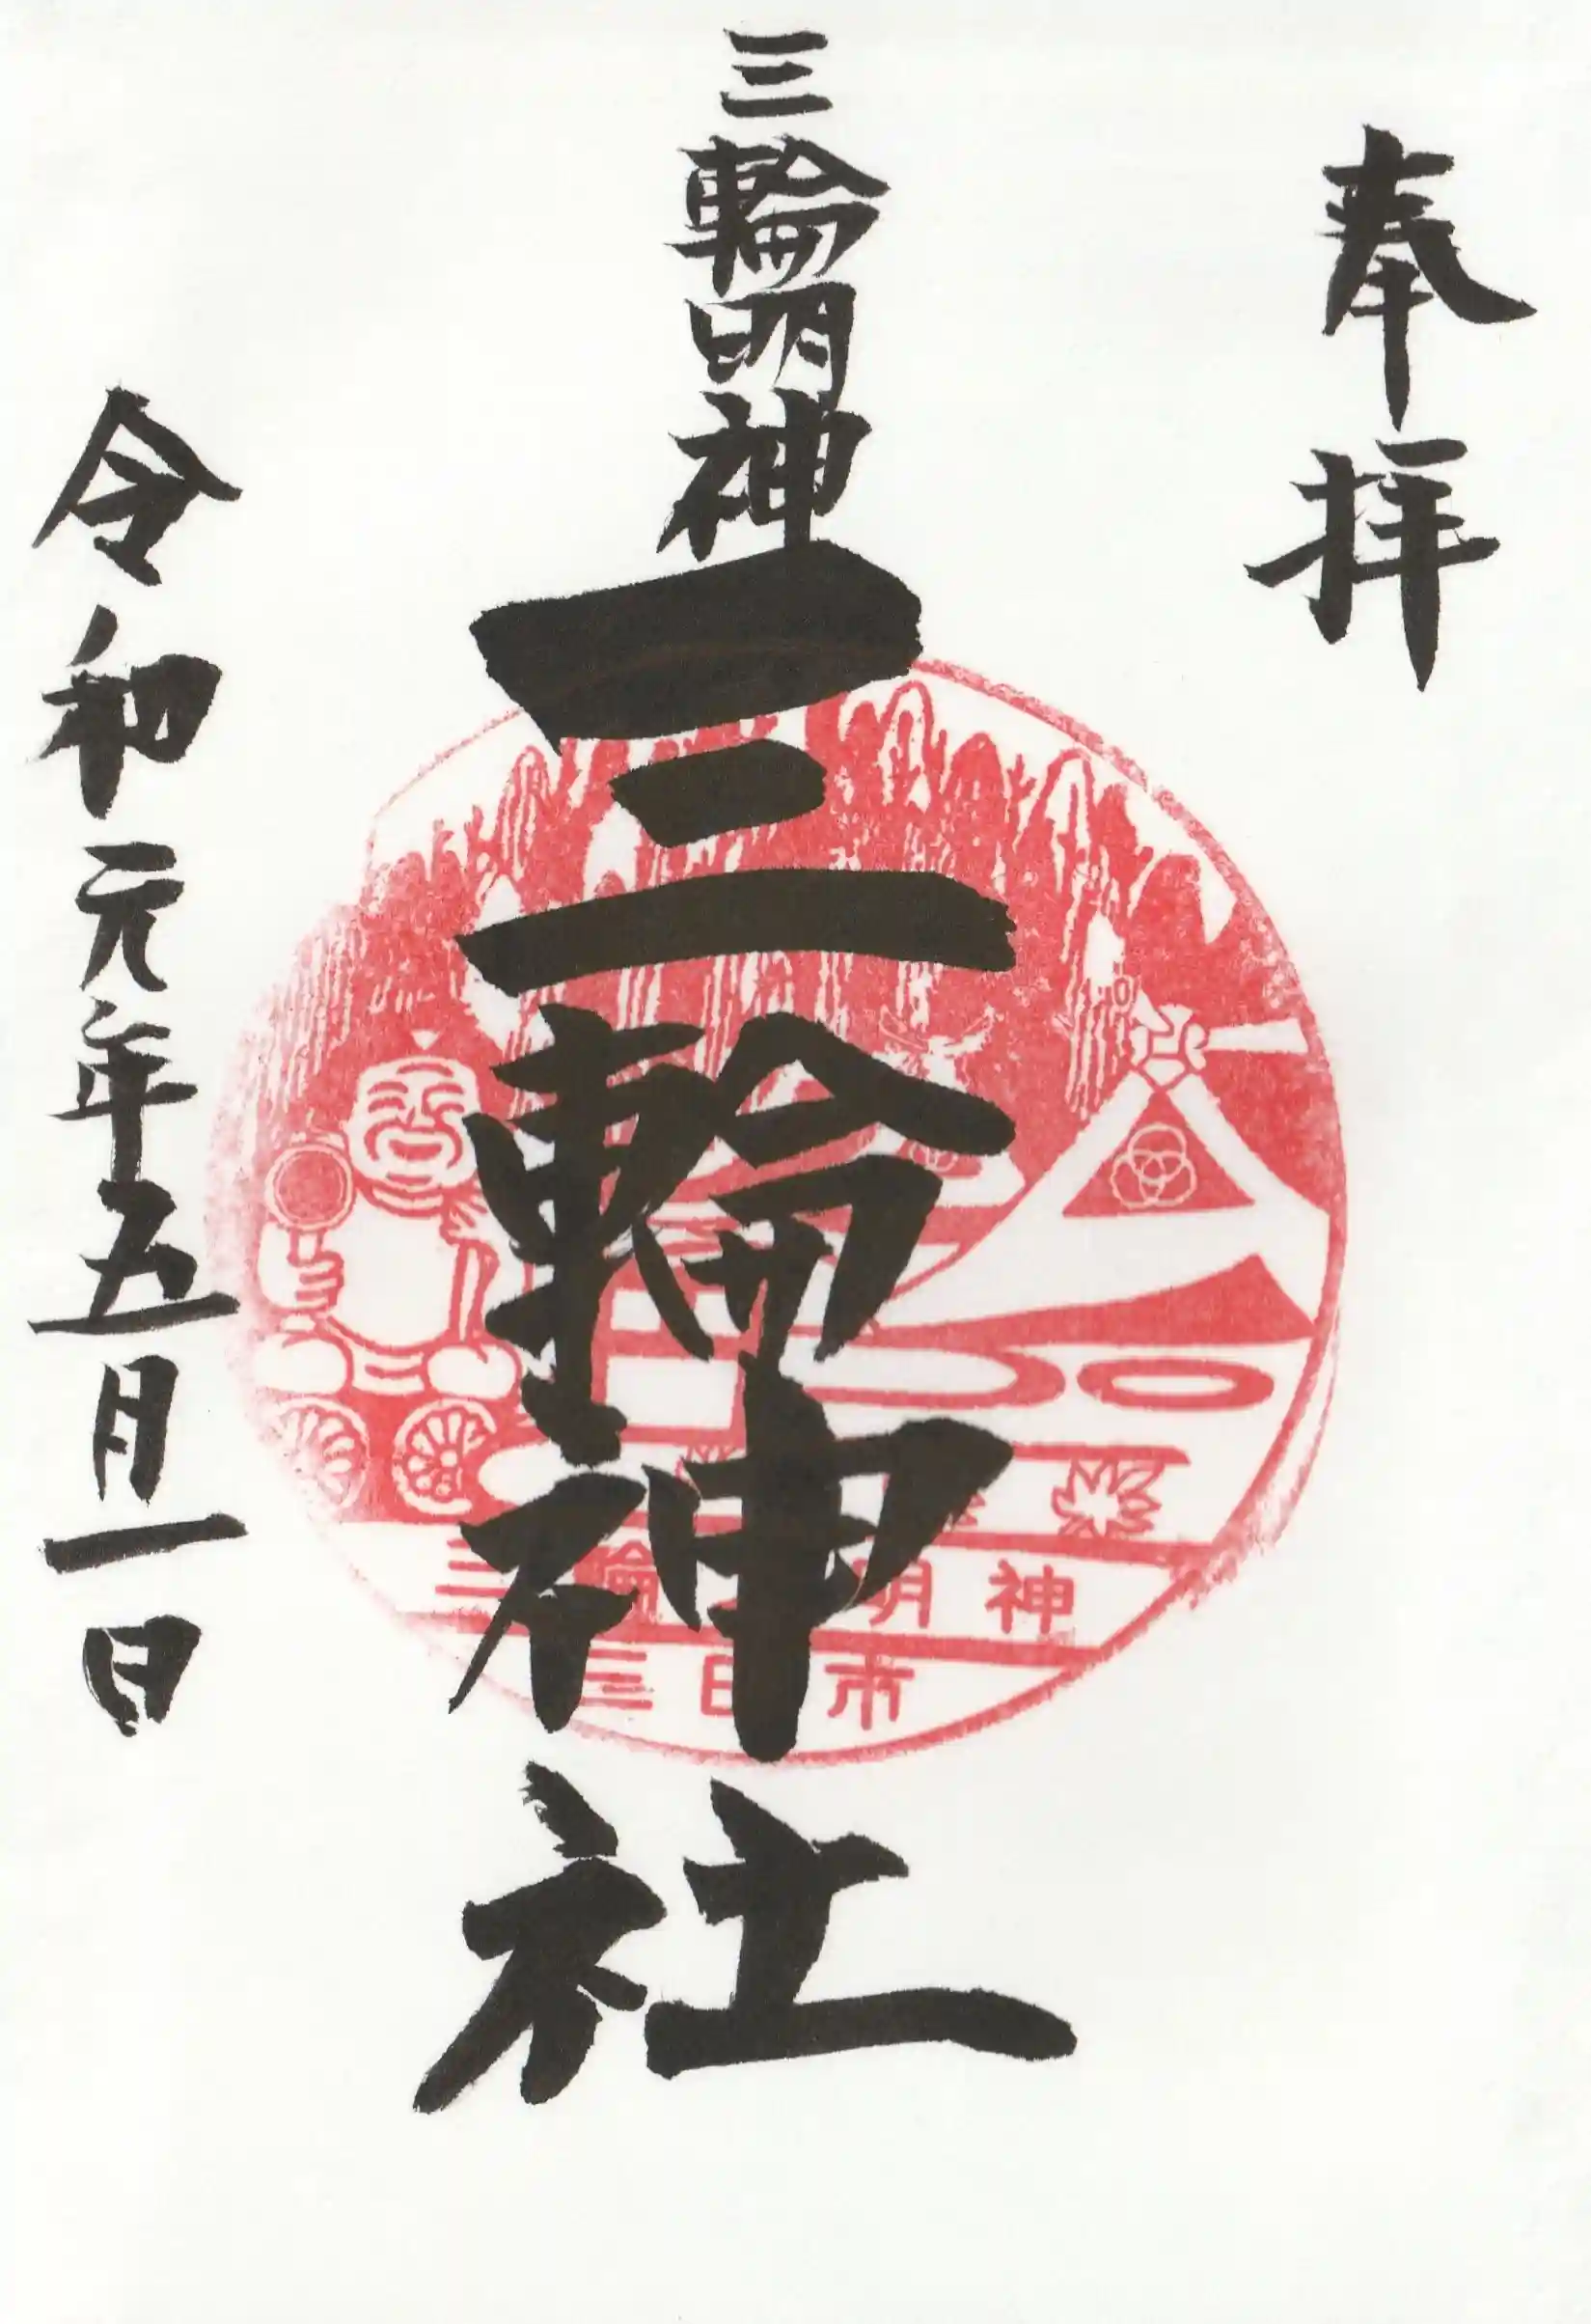 奉拝
三輪明神
三輪神社
令和元年五月一日
三輪明神
三日市